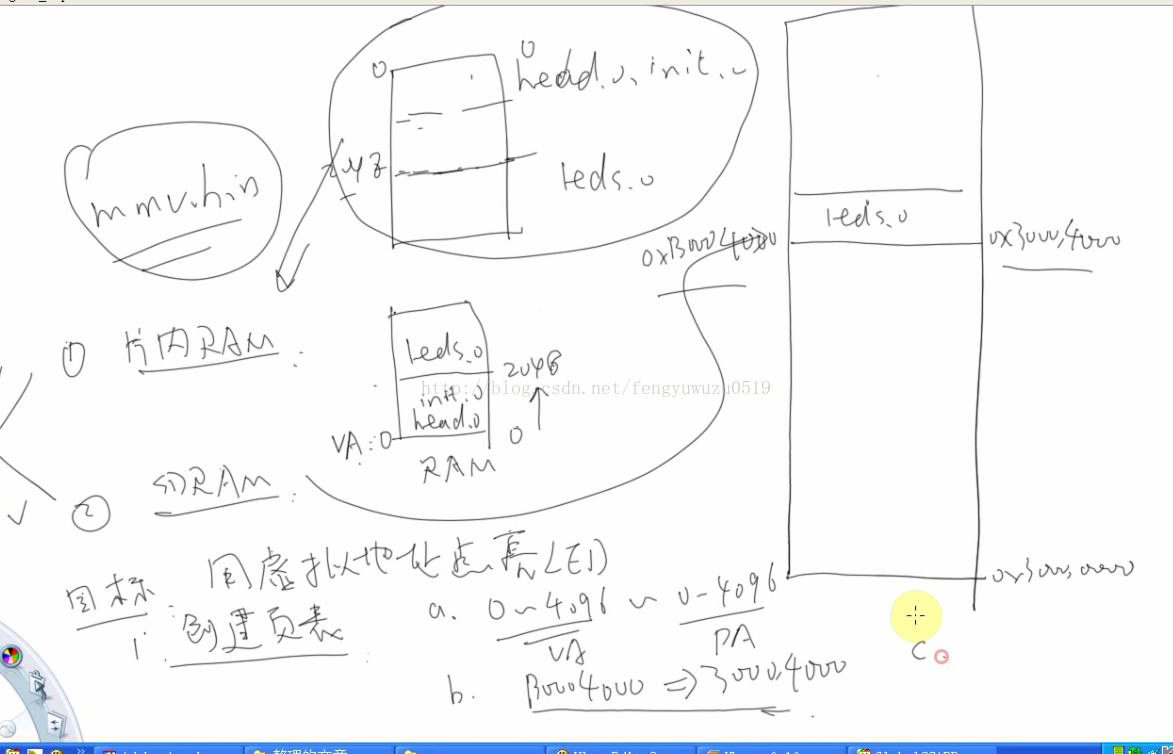 0
0
head.o, init.o
mmu.bin
2048
leds.o
leds.o
0xB0004000
0x3000,4000
① 片内RAM:
leds.o
2048
http://blog.csdn.net/fengyuwuzu0519
init.o
head.o
VA:0
0
RAM
② SDRAM:
0x3000,0000
目标: 用虚拟地址点亮LED
1. 创建页表:
a. 0~4096 ~ 0-4096
VA
PA
b. B0004000 => 3000,4000
C
整理的文章